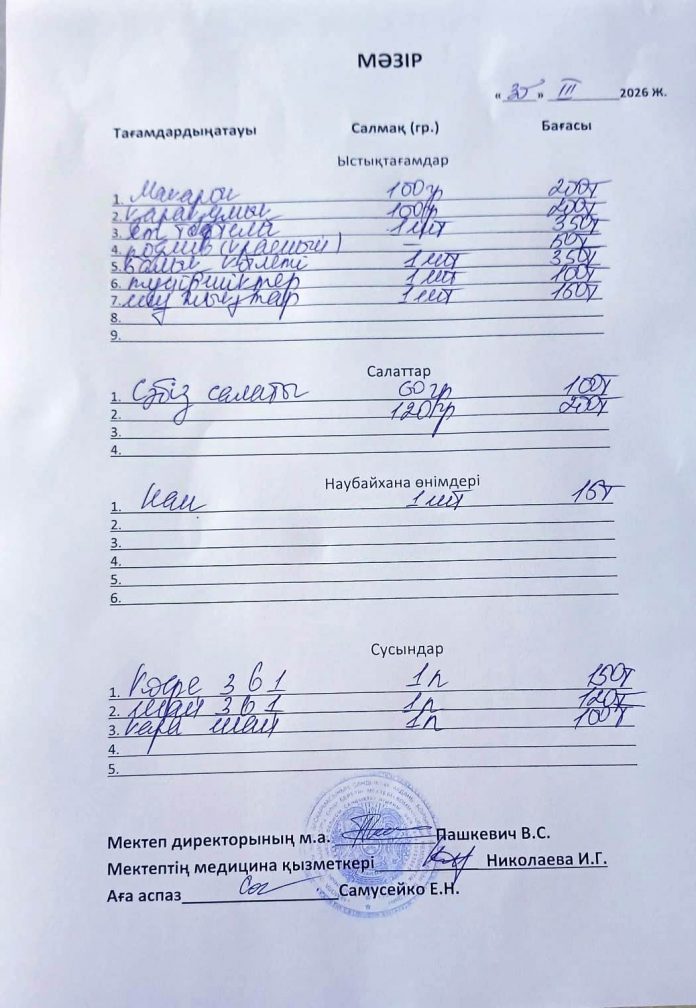 МӘЗІР
« » III 2026 Ж.
Тағамдардыңатауы Салмақ (гр.) Бағасы
Ыстықтағамдар
1. Макарон 100гр 200т
2. қарақұмық 100гр 200т
3. ет тефтели 1шт 350т
4. подлив (красный) — 50т
5. балық котлеті 1шт 350т
6. түйіршіктер 1шт 100т
7. 1шт 150т
8.
9.
Салаттар
1. Сәбіз салаты 60гр 100т
2. 120гр 200т
3.
4.
Наубайхана өнімдері
1. Нан 1шт 15т
2.
3.
4.
5.
6.
Сусындар
1. Кофе 3 в 1 1п 150т
2. шай 3 в 1 1п 120т
3. қара шай 1п 100т
4.
5.
Мектеп директорының м.а. Пашкевич В.С.
Мектептің медицина қызметкері Николаева И.Г.
Аға аспаз Самусейко Е.Н.